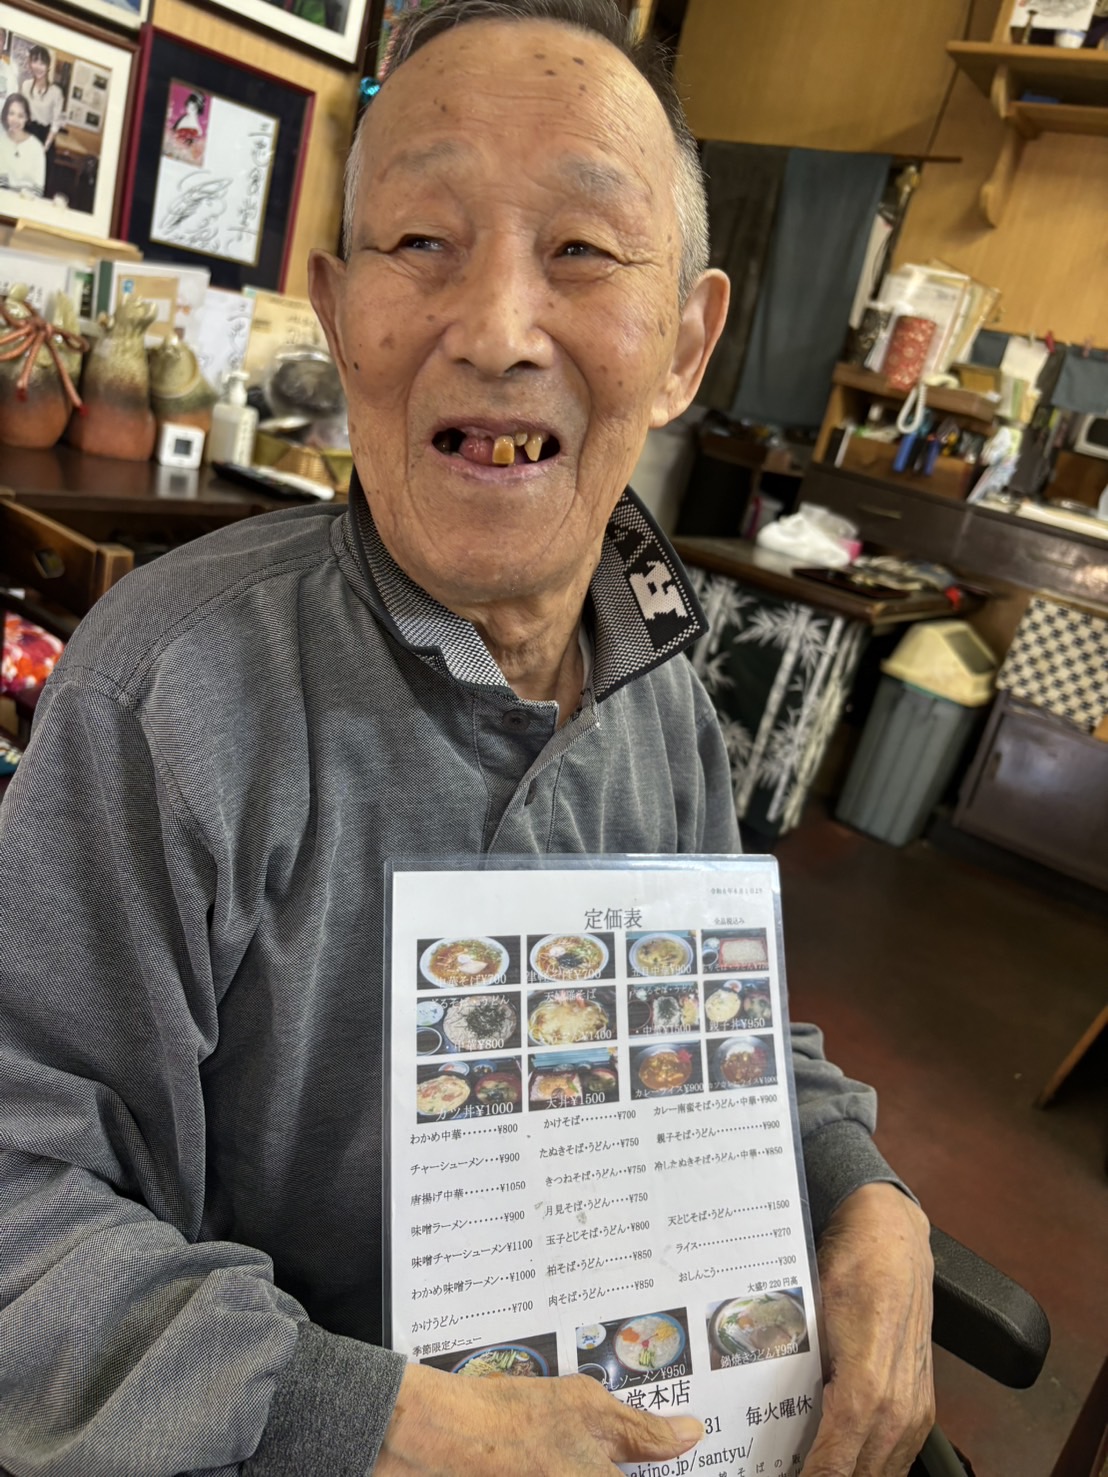 定価表
全品税込み
中華そば¥700
¥700
五目中華¥900
ざるそば・うどん
・中華¥800
天ぷらそば
¥1400
・中華¥1500
親子丼¥950
カツ丼¥1000
天丼¥1500
カレーライス¥900
カツカレーライス¥1000
わかめ中華・・・・・・・¥800
チャーシューメン・・・¥900
唐揚げ中華・・・・・・・¥1050
味噌ラーメン・・・・・・・¥900
味噌チャーシューメン¥1100
わかめ味噌ラーメン・・¥1000
かけうどん・・・・・・・・・・¥700
かけそば・・・・・・・・¥700
たぬきそば・うどん・・¥750
きつねそば・うどん・・¥750
月見そば・うどん・・・・¥750
玉子とじそば・うどん・¥800
柏そば・うどん・・・・・・¥850
肉そば・うどん・・・・・・¥850
カレー南蛮そば・うどん・中華・¥900
親子そば・うどん・・・・・・・・・・¥900
冷したぬきそば・うどん・中華・・¥850
天とじそば・うどん・・・・・・・・・¥1500
ライス・・・・・・・・・・・・・・・・・¥270
おしんこう・・・・・・・・・・・・・・¥300
大盛り220円高
季節限定メニュー
しソーメン¥950
鍋焼きうどん¥950
堂本店
31 毎火曜休
akino.jp/santyu/